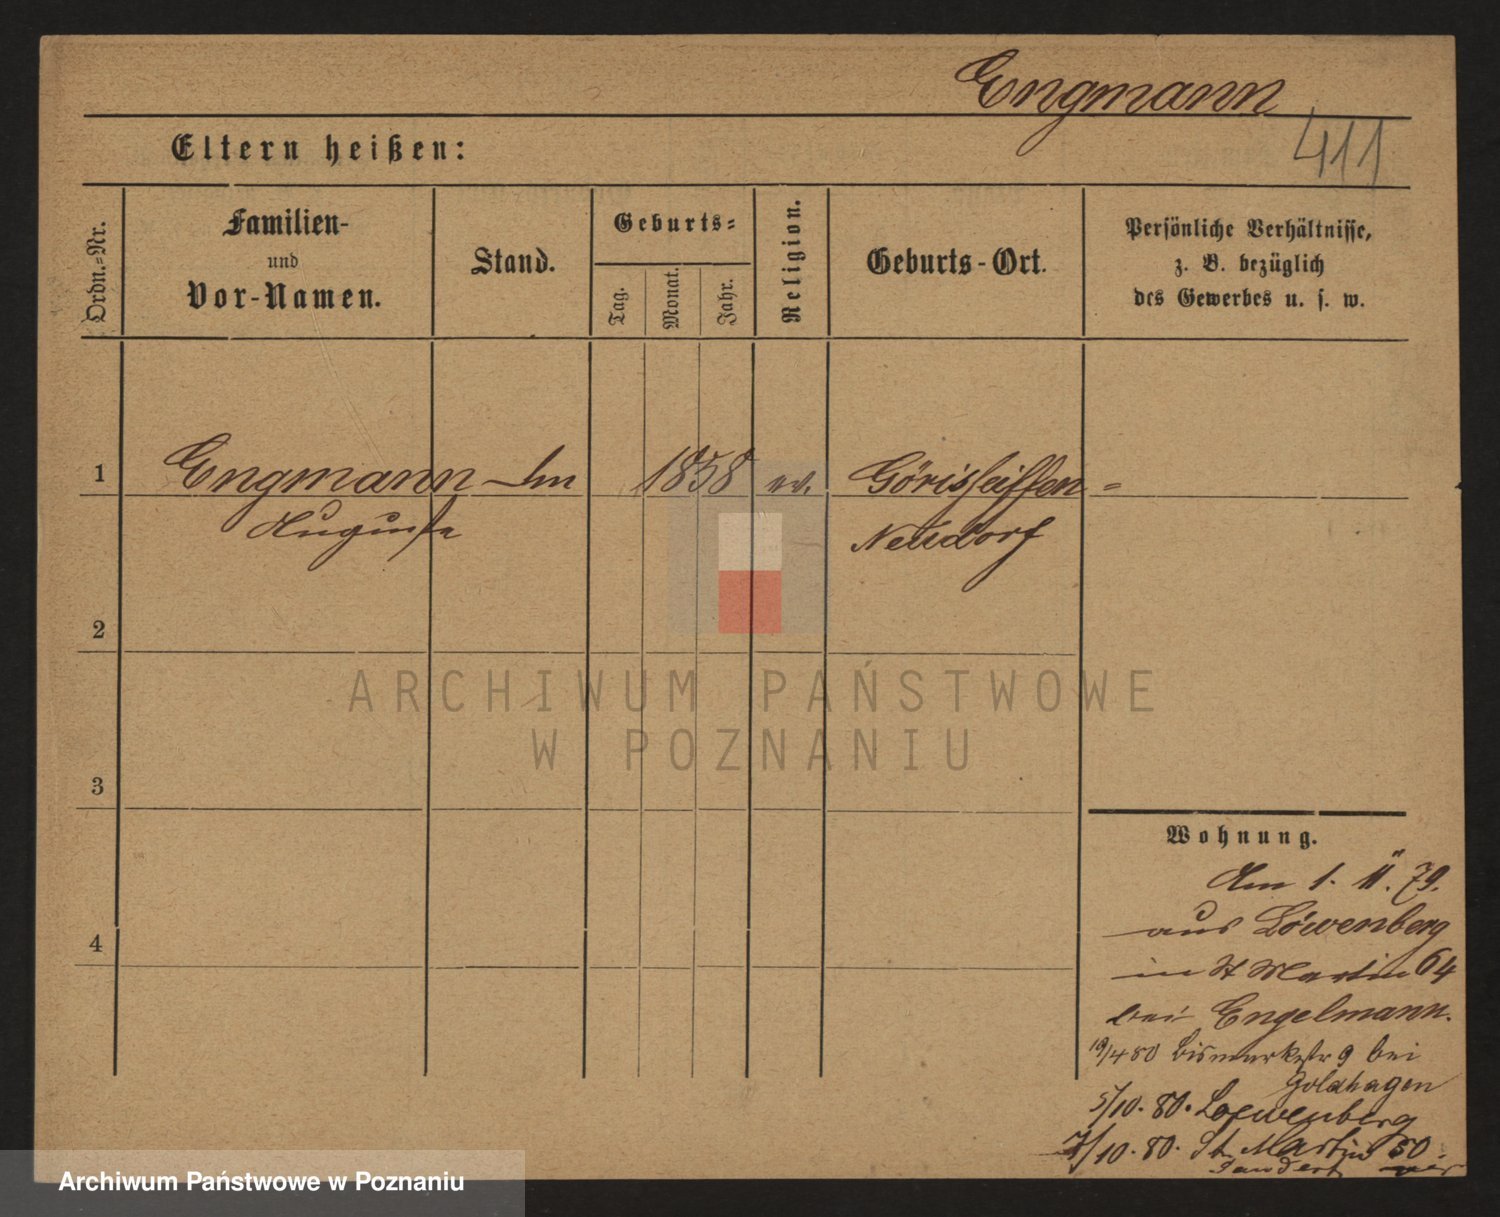 Engmann
411
Eltern heißen:
Ordn.-Nr.
Familien-
und
Vor-Namen.
Stand.
Geburts-
Tag.
Monat.
Jahr.
Religion.
Geburts-Ort.
Persönliche Verhältnisse,
z. B. bezüglich
des Gewerbes u. s. w.
1 Engmann 1858 ev. Görisseiffen-
Auguste Neudorf
2
3
4
ARCHIWUM PAŃSTWOWE
W POZNANIU
Wohnung.
Am 1. 11. 79.
aus Löwenberg
in St Martin 64
bei Engelmann.
19/4 80 Bismarkstr 9 bei
Goldhagen
5/10. 80. Loewenberg
7/10. 80. St. Martin 50
Archiwum Państwowe w Poznaniu